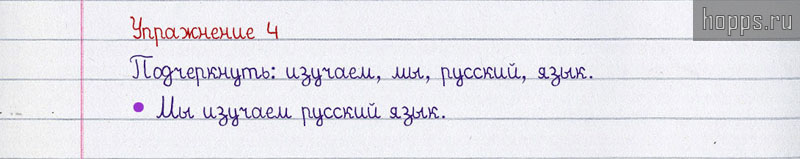 hopps.ru
Упражнение 4
Подчеркнуть: изучаем, мы, русский, язык.
• Мы изучаем русский язык.